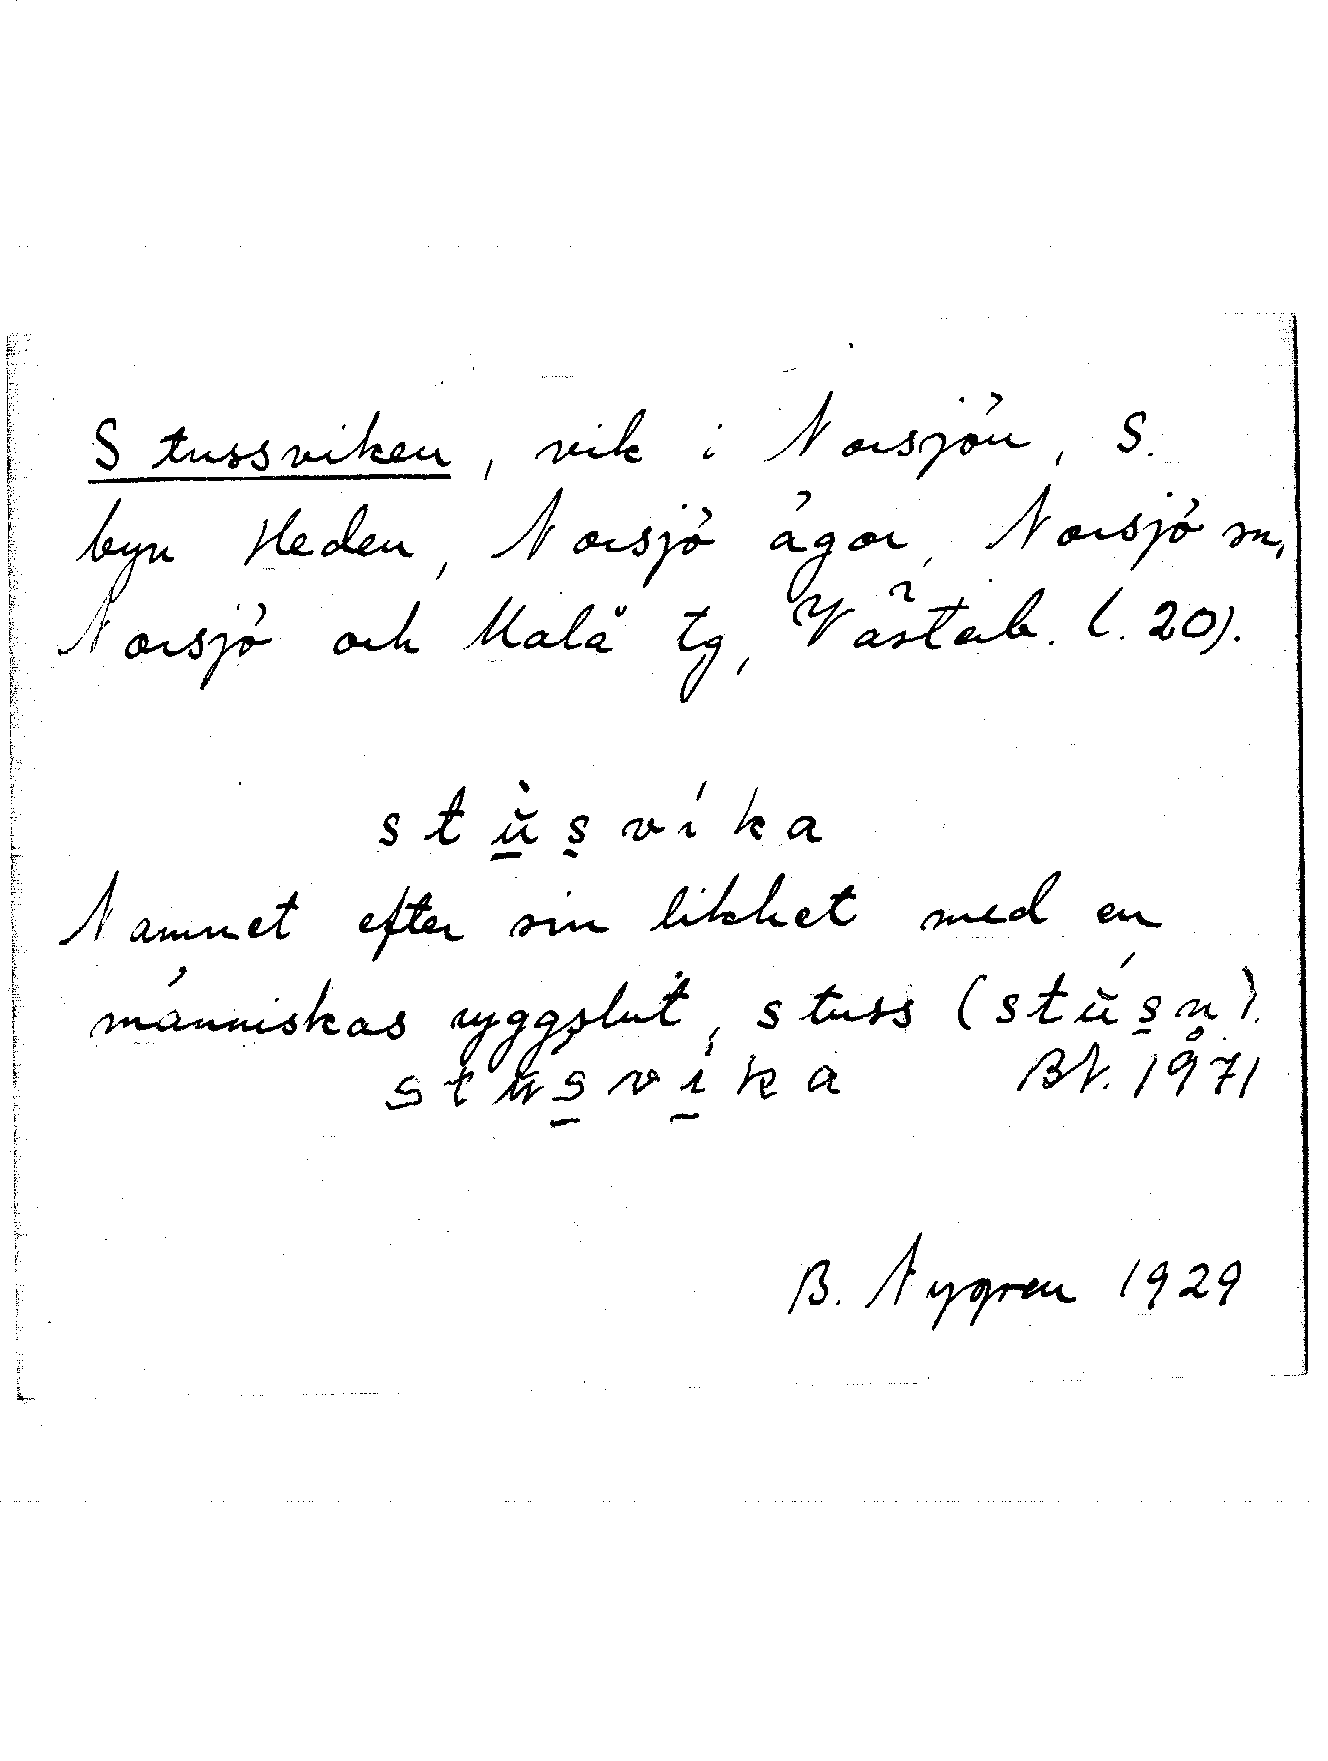 Stussviken, vik i Norsjön, S.
byn Heden, Norsjö ägor, Norsjö sn,
Norsjö och Malå tg, Västerb. l. 20).
stŭ̱̀s̱víka
Namnet efter sin likhet med en
människas ryggslut, stuss (stŭ́s̱n̥).
stus̱vi̱ka BN. 1971
B. Nygren 1929